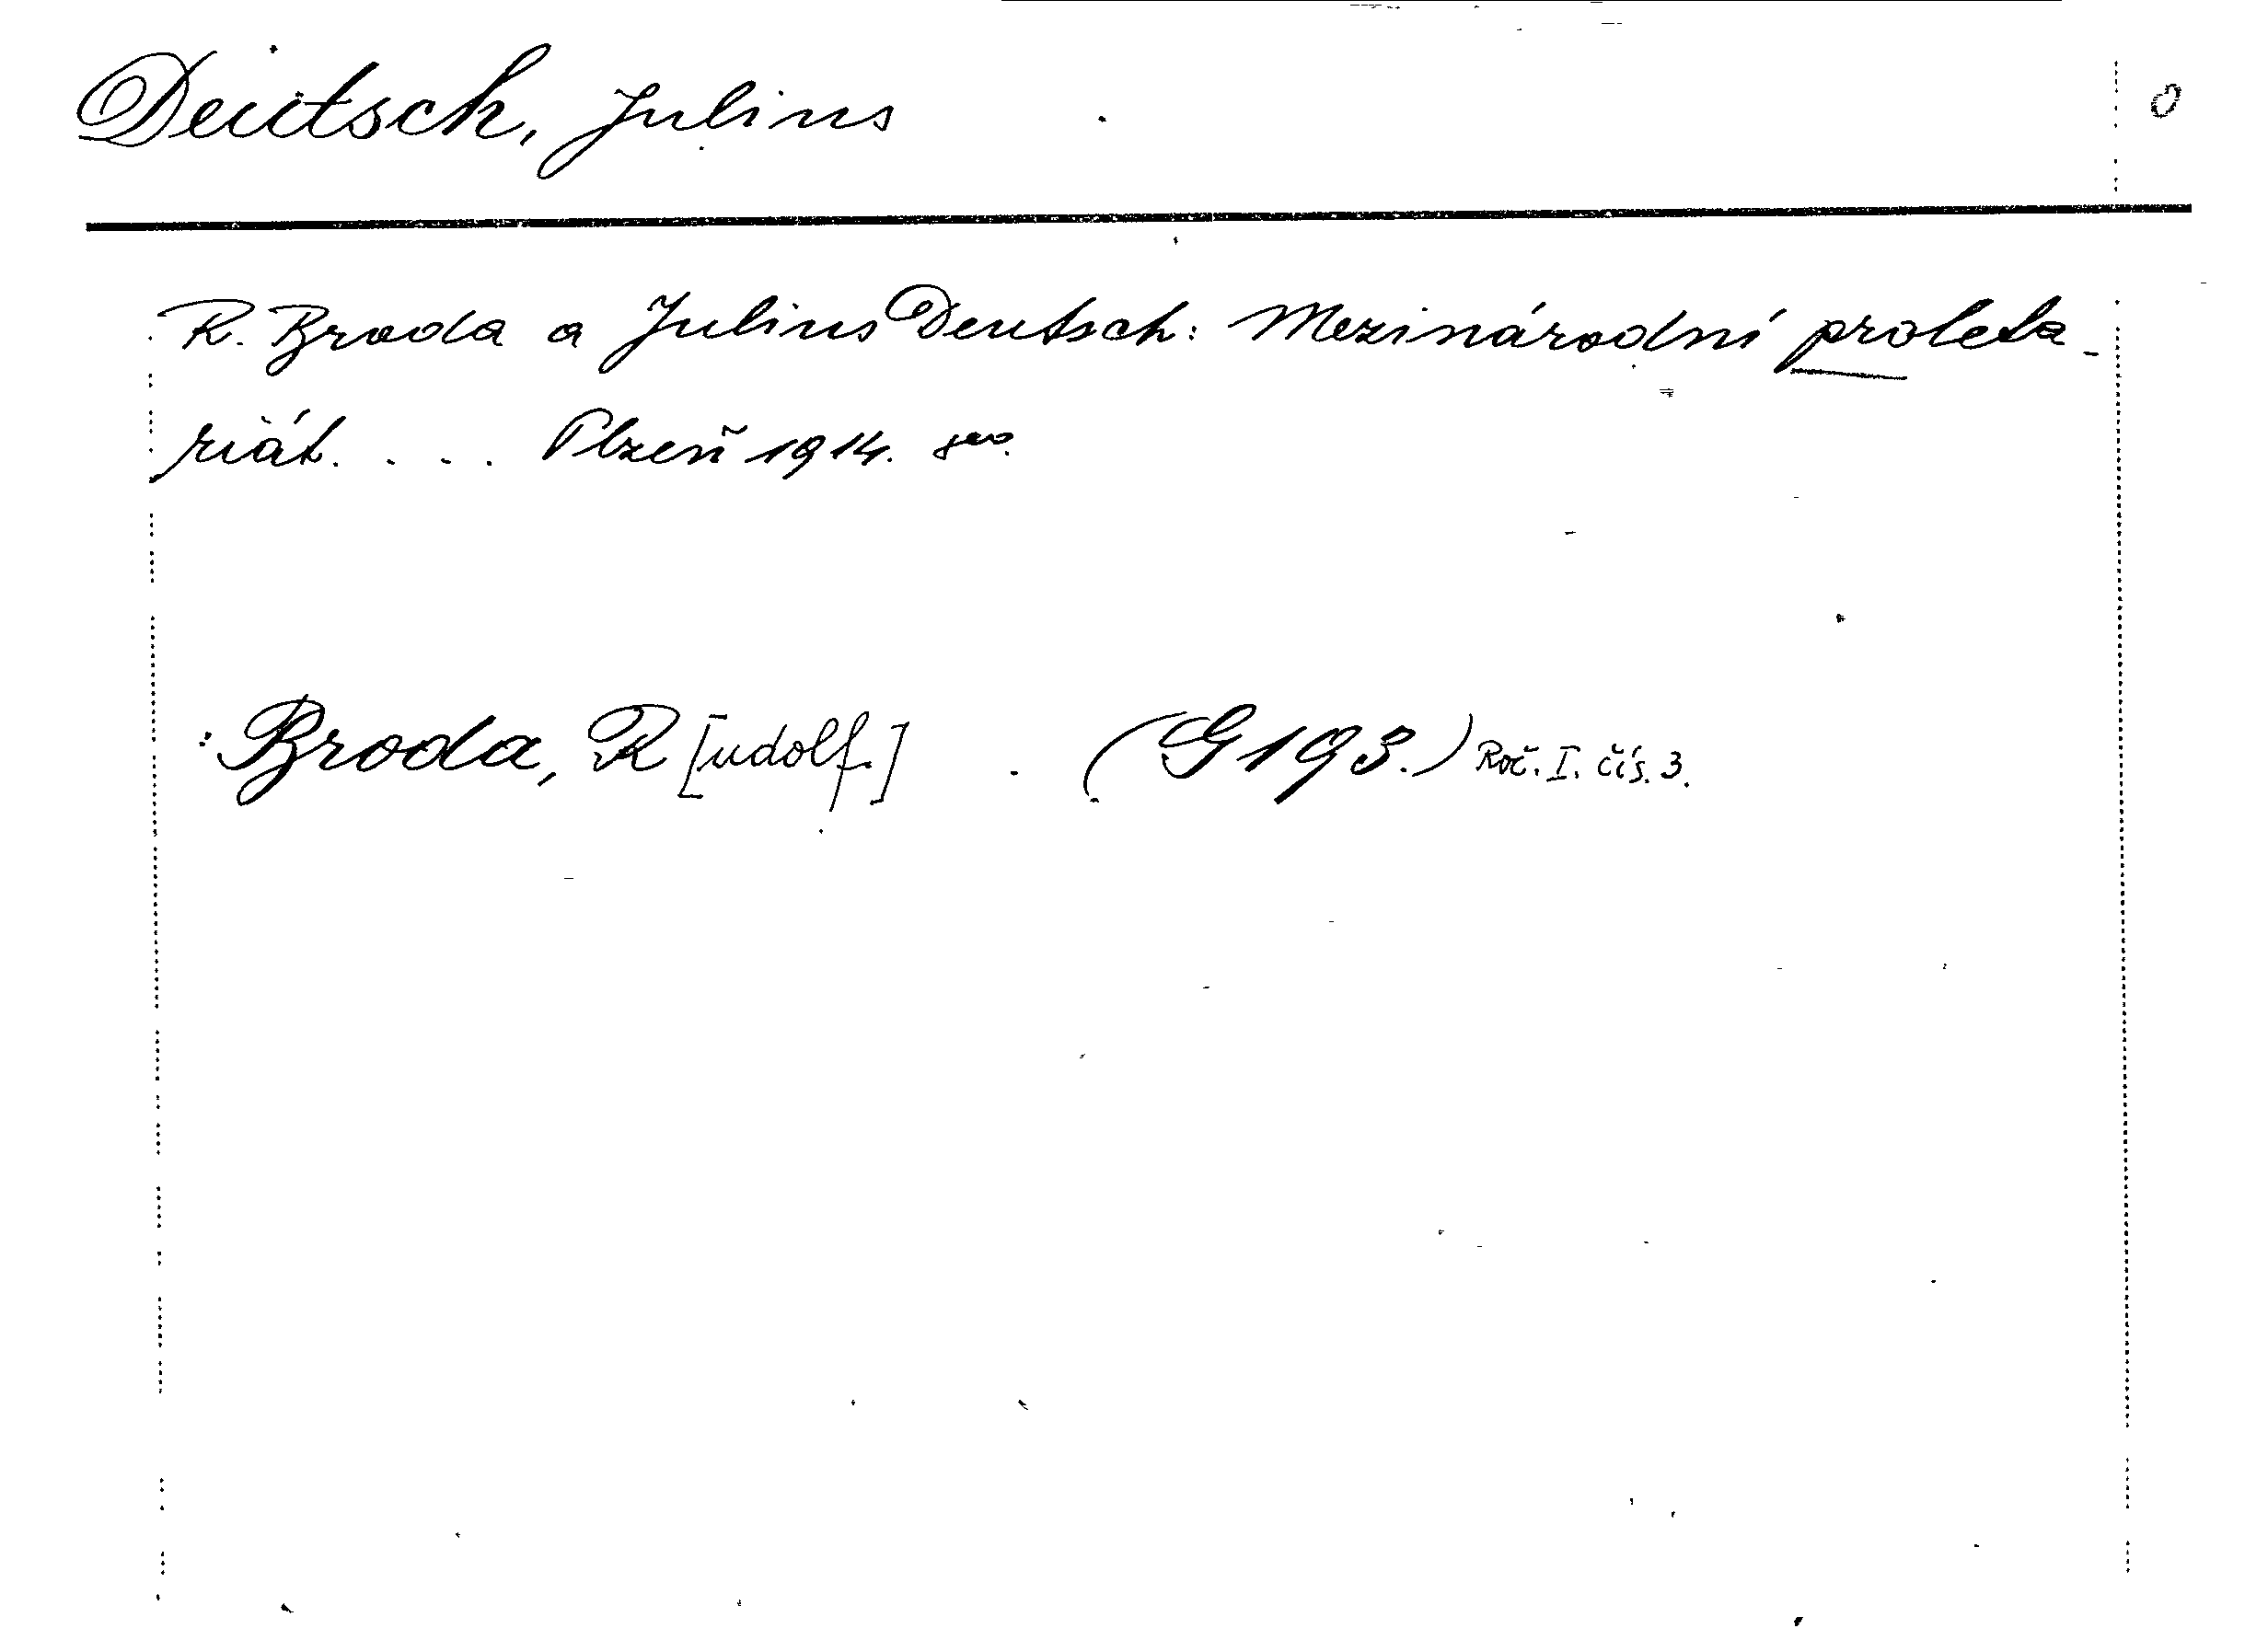 Deutsch, Julius 0
R. Broda a Julius Deutsch: Mezinárodní proleta-
riát. . . . Plzeň 1914. 8vo.
: Broda, R [udolf.] . (G 193.) Roč. I. čís. 3.